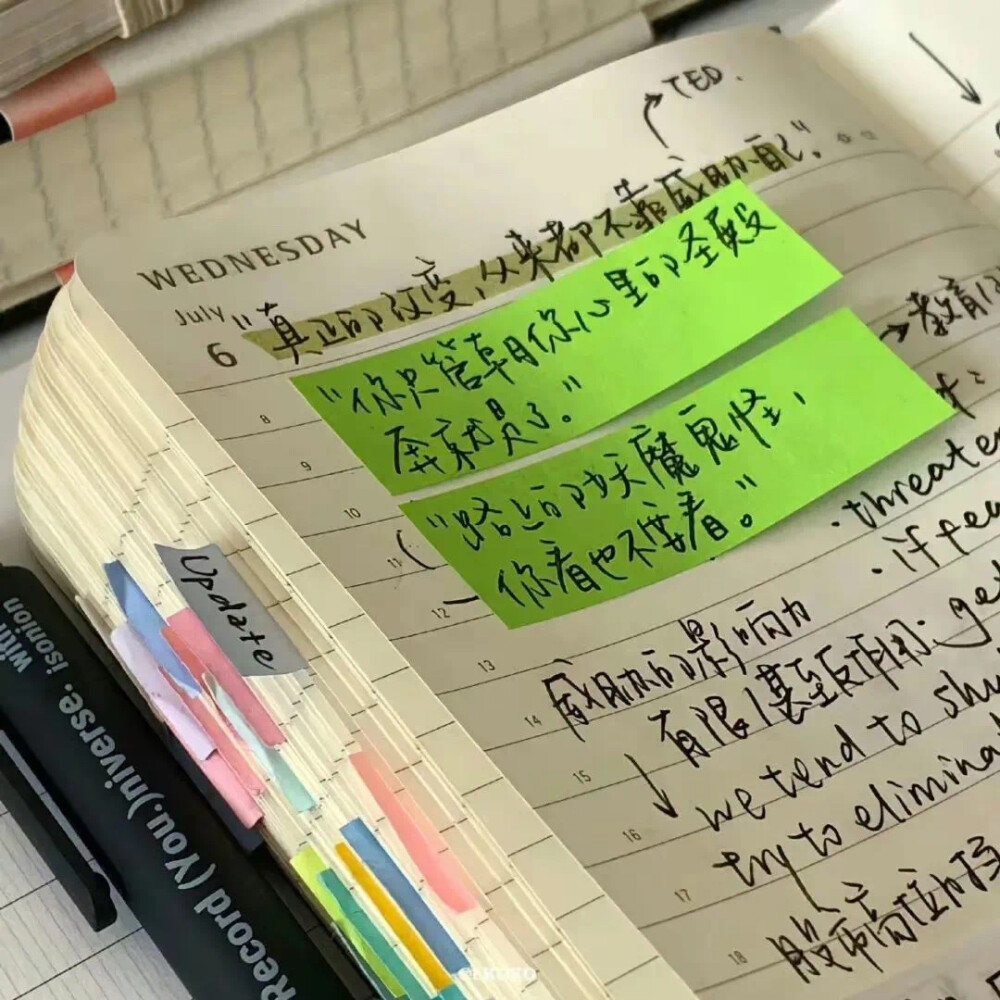 TED.
WEDNESDAY
July
6
"真正的改变,从来都不靠威胁自己."
"你只管朝你心里的圣殿
奔就是了。"
"路上的妖魔鬼怪,
你看也不要看。"
8
9
10
11
12
13
14
15
16
17
18
→教育
· threaten
· if fee
威胁的影响力
有限/甚至反作用: ge
we tend to shu
try to elimina
股市高位时
Update
with
isonion
Record (You.)niverse.